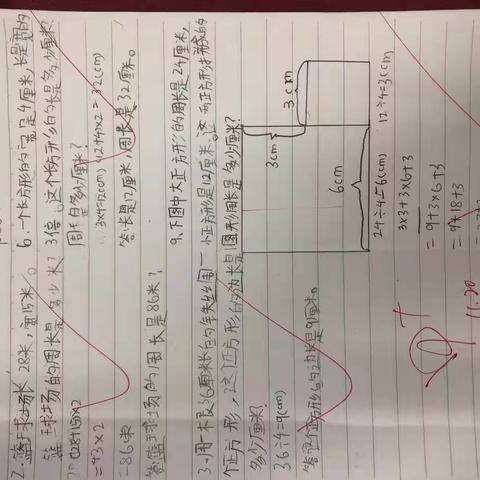 2. 篮球场长28米,宽15米。
篮球场的周长是多少米?
(28+15)×2
=43×2
=86米
答:篮球场的周长是86米?
3. 用一根36厘米长的铁丝围一
个正方形,这个正方形的边长是
多少厘米?
36÷4=9(cm)
答:这个正方形的边长是9厘米。
6. 一个长方形的宽是4厘米,长是宽的
3倍。这个长方形的长是多少厘米?
周长是多少厘米?
3×4=12(cm) (12+4)×2=32(cm)
答:长是12厘米,周长是32厘米。
9. 下图中大正方形的周长是24厘米,
小正方形是12厘米。这两正方形拼成的
图形周长是多少厘米?
3cm
3cm
6cm
24÷4=6(cm) 12÷4=3(cm
3×3+3×6+3
=9+3×6+3
=9+18+3
11.20